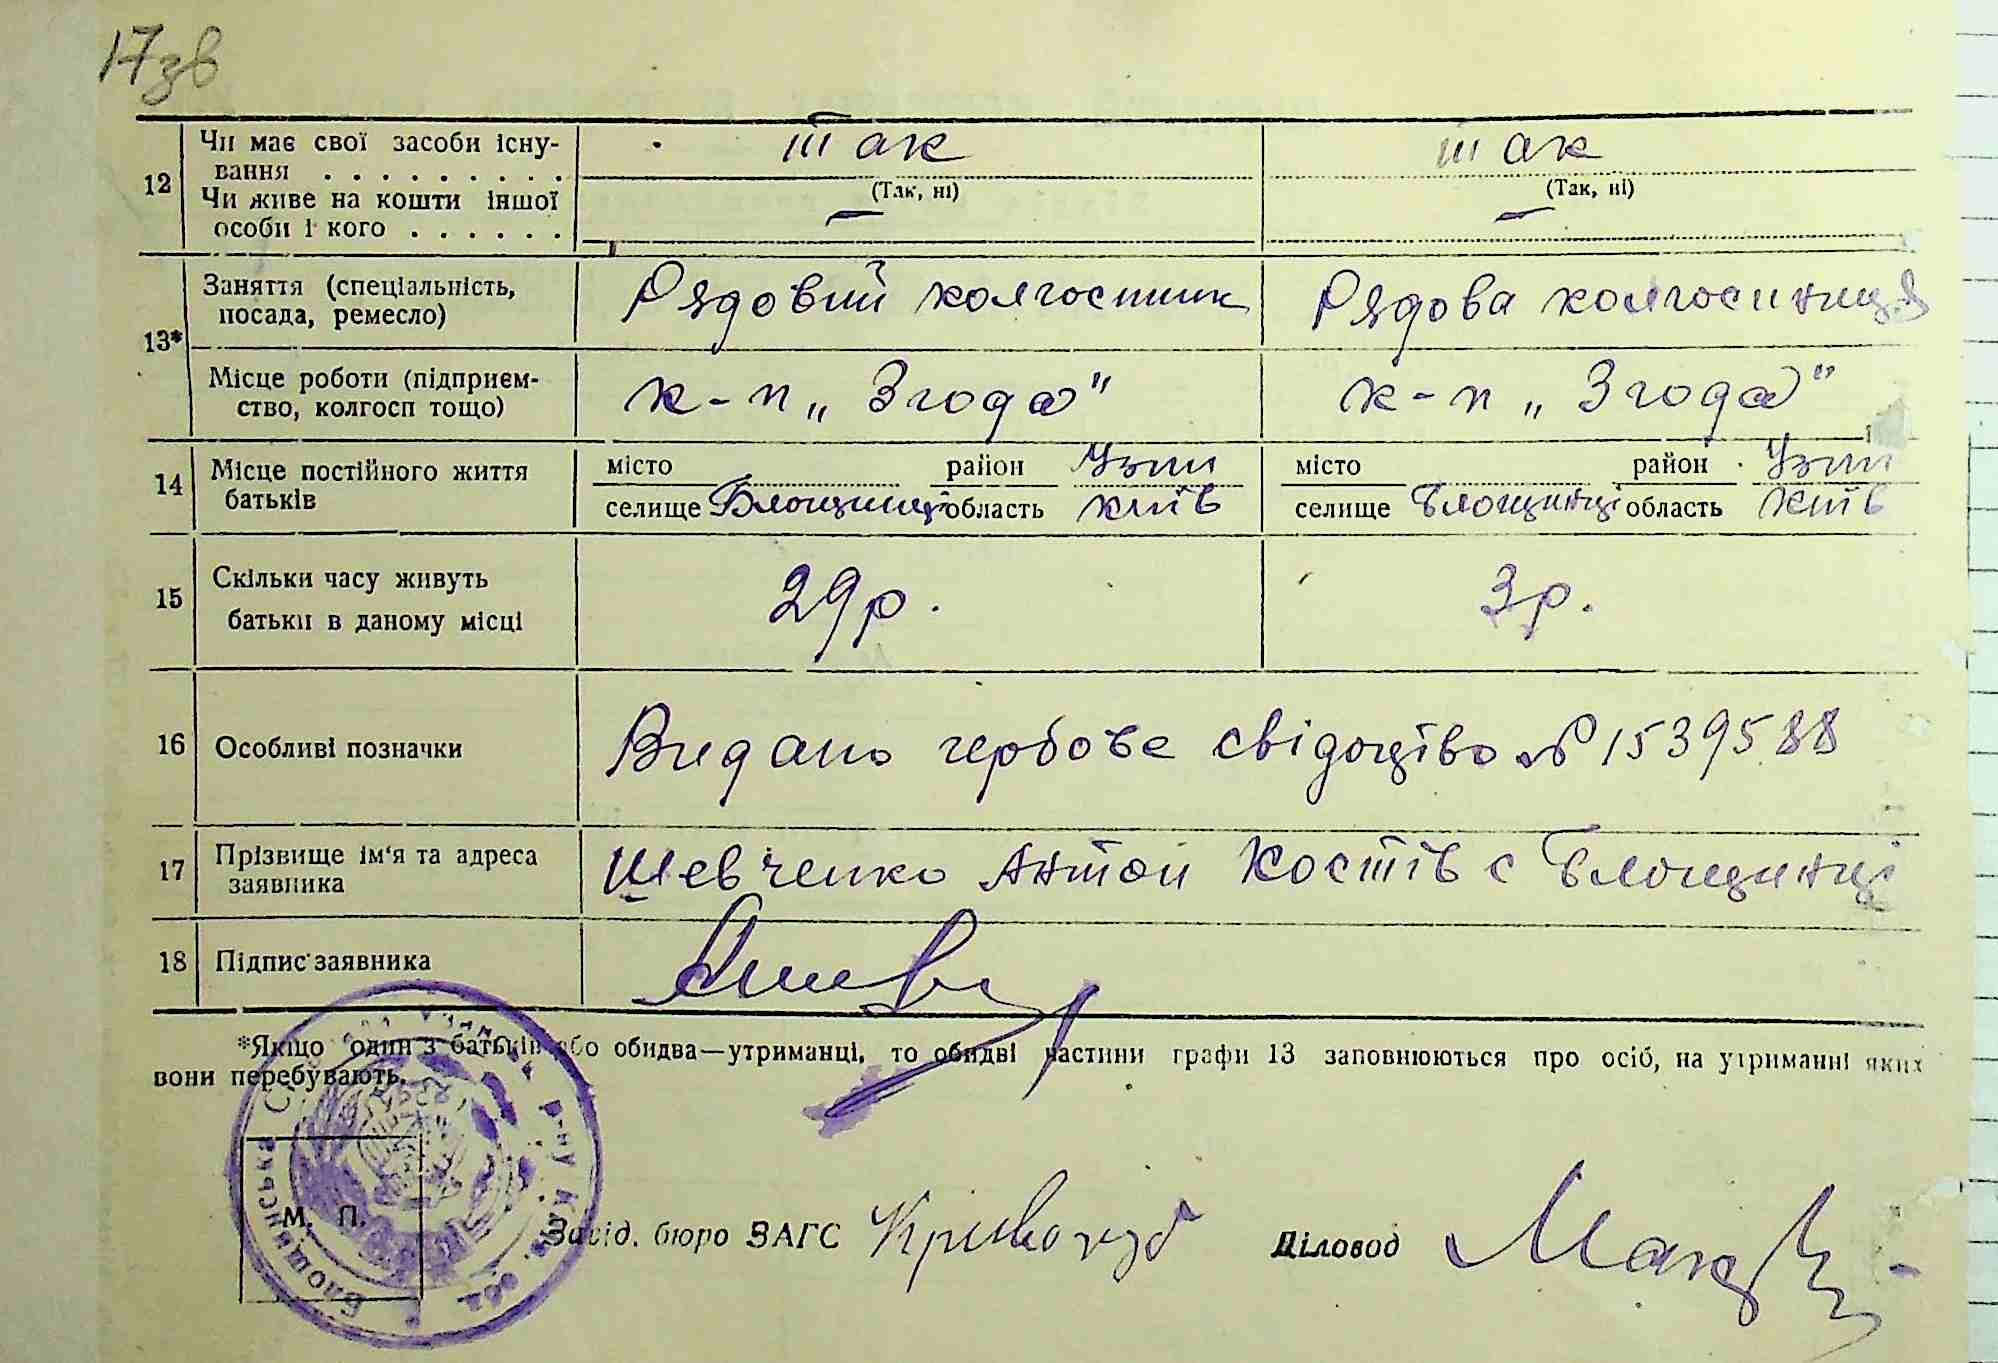 17зв
12 Чи має свої засоби існу-
вання . . . . . . . . . так так
(Так, ні) (Так, ні)
Чи живе на кошти іншої
особи і кого . . . . . . — —
13* Заняття (спеціальність,
посада, ремесло) Рядовий колгоспник Рядова колгоспниця
Місце роботи (підприєм-
ство, колгосп тощо) к-п „Згода" к-п „Згода"
14 Місце постійного життя
батьків
місто район Узин місто район Узин
селище Блощинці область Київ селище Блощинці область Київ
15 Скільки часу живуть
батьки в даному місці 29 р. 3 р.
16 Особливі позначки Видано гербове свідоцтво № 1539588
17 Прізвище ім'я та адреса
заявника Шевченко Антон Костів с Блощинці
18 Підпис заявника
*Якщо один з батьків або обидва—утриманці, то обидві частини графи 13 заповнюються про осіб, на утриманні яких
вони перебувають.
М. П.
Завід. бюро ЗАГС Діловод